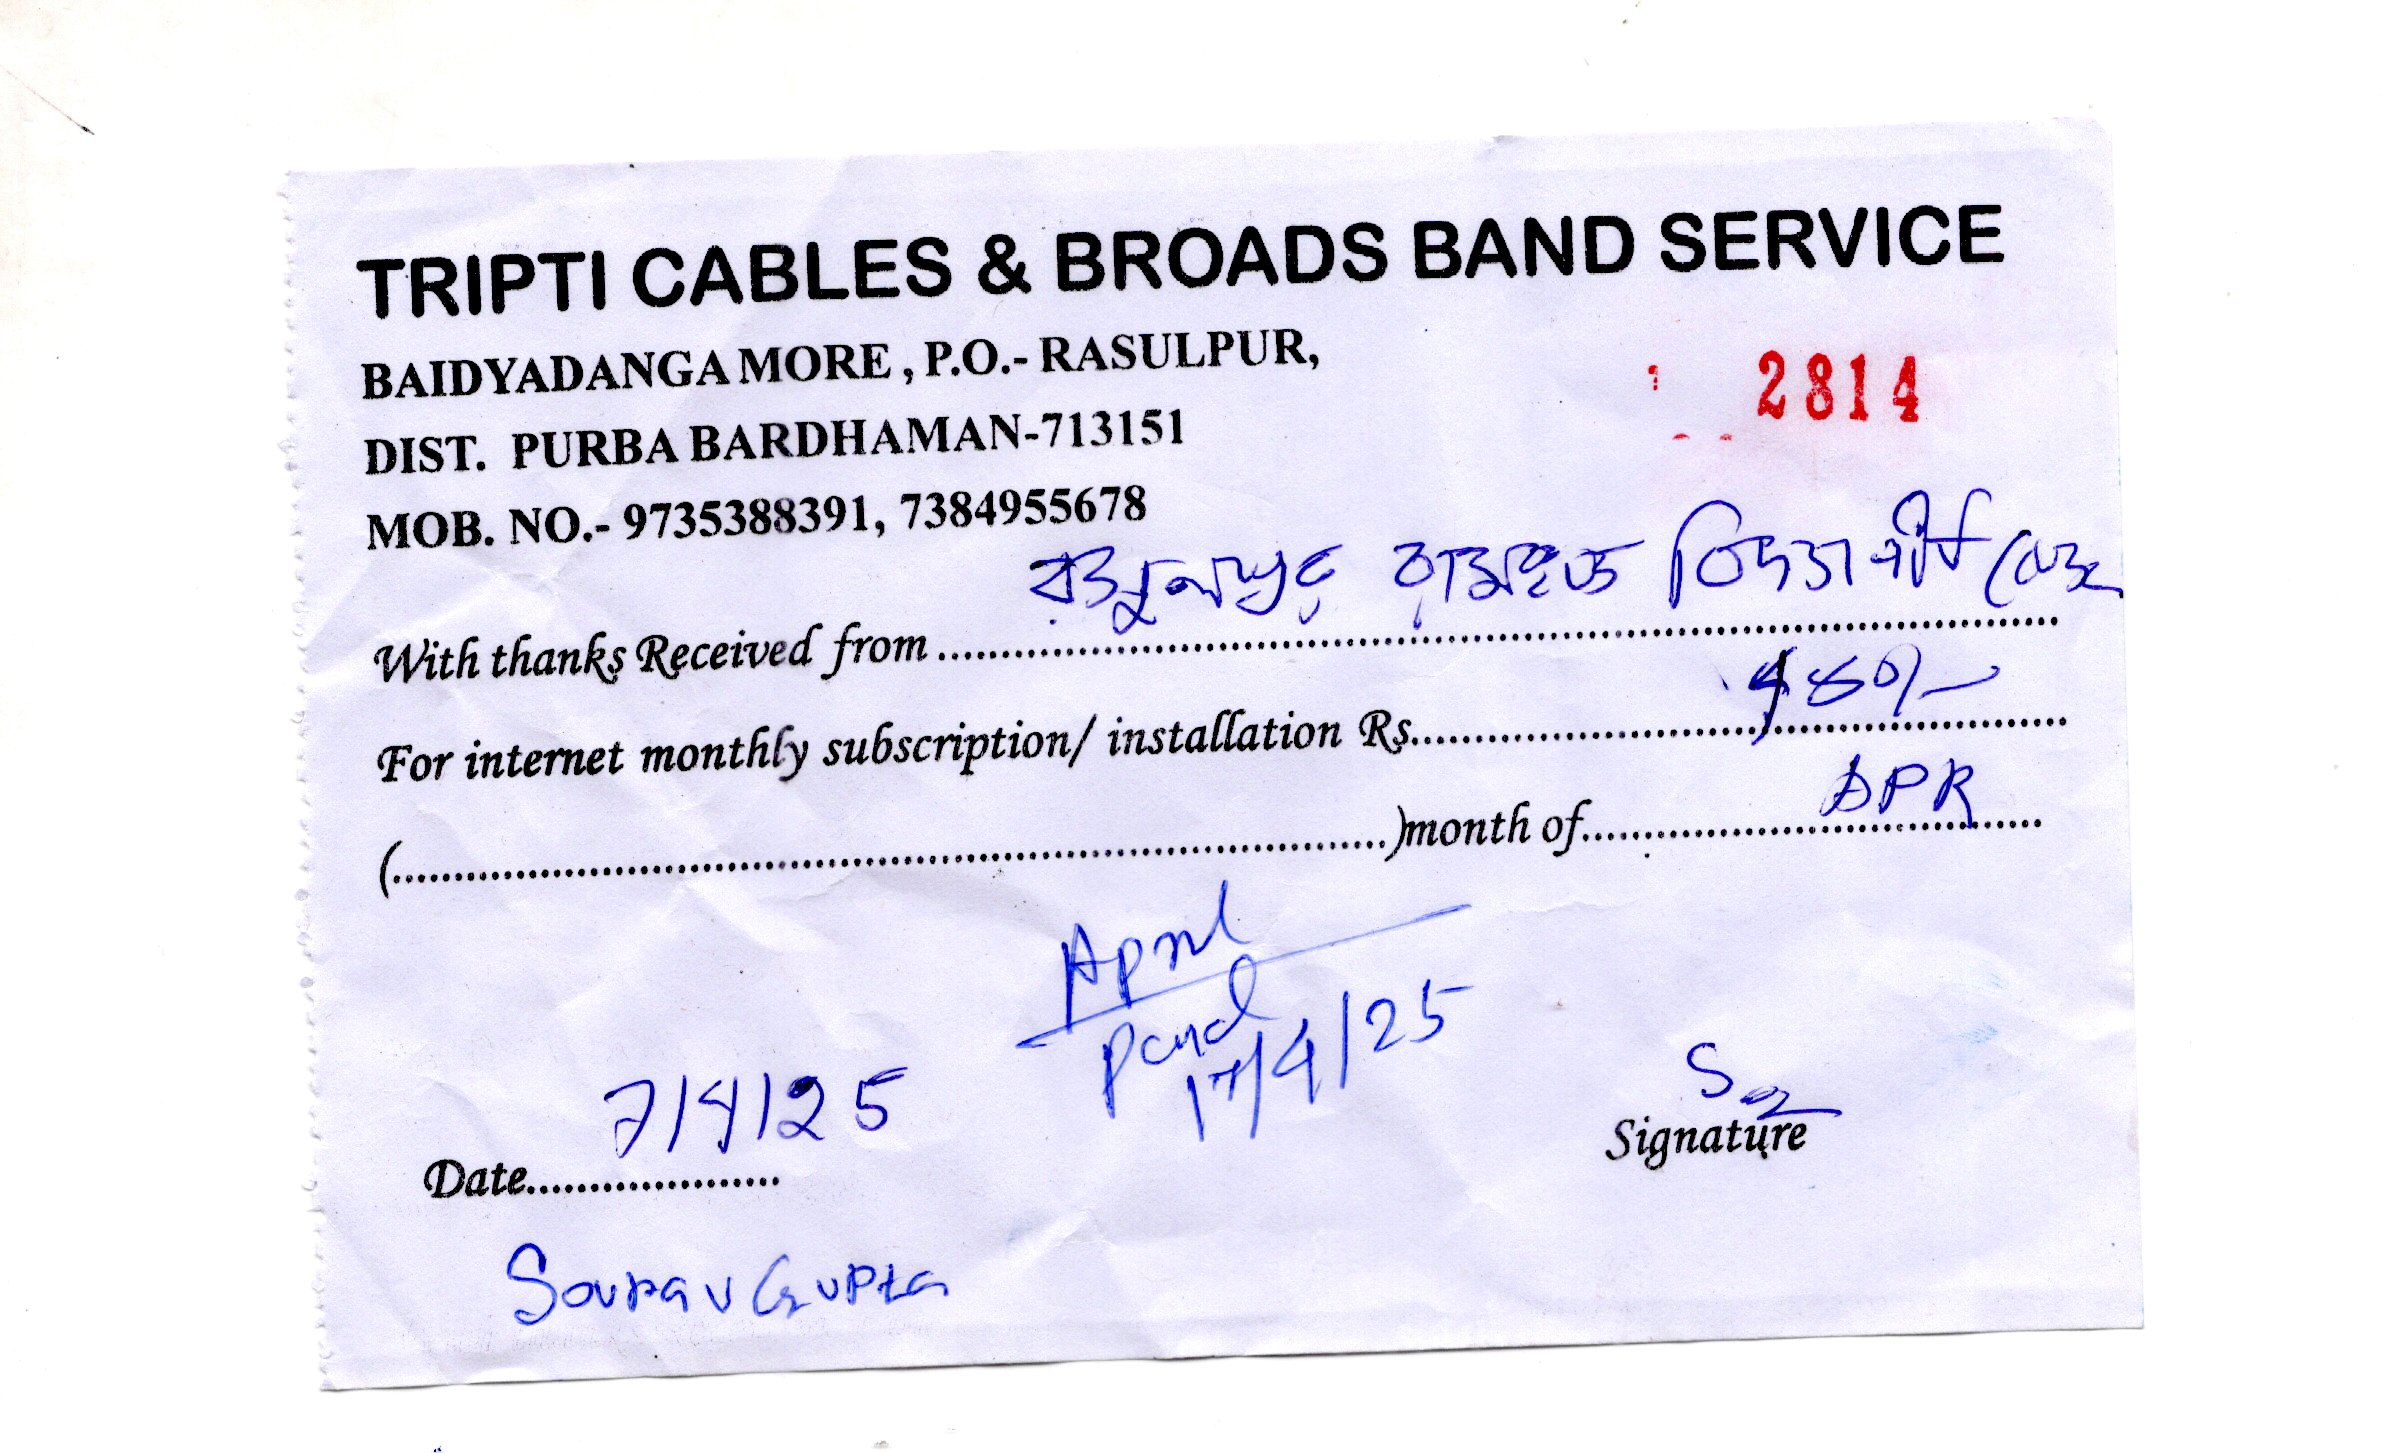 TRIPTI CABLES & BROADS BAND SERVICE
BAIDYADANGA MORE , P.O.- RASULPUR,
2814
DIST. PURBA BARDHAMAN-713151
MOB. NO.- 9735388391, 7384955678
রসুলপুর
With thanks Received from
For internet monthly subscription/ installation Rs.
(.....)month of..... APR
April
Paid
17/4/25
7/4/25
Date
Signature
Sourav Gupta